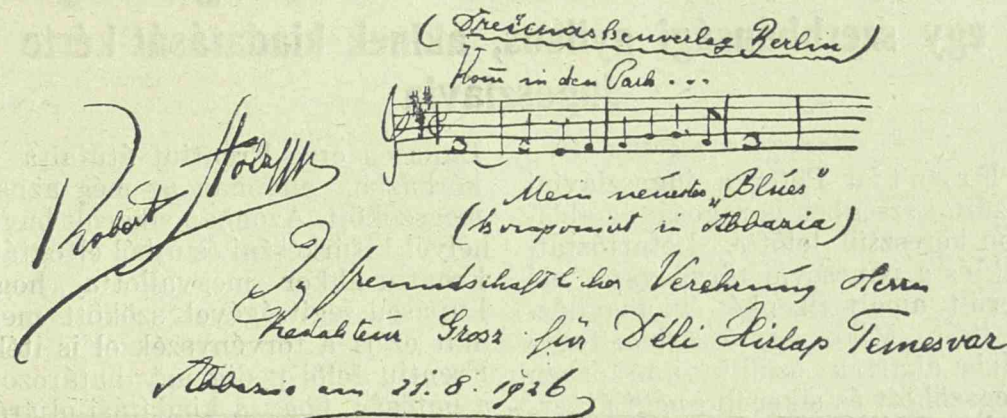 (Dreimasken verlag Berlin)
Kom in den Park...
Robert Stolz
Mein neuestes „Blues"
(komponiert in Abbazia)
In freundschaftlicher Verehrung Herrn
Redakteur Grosz für Déli Hirlap Temesvar
Abbazia am 21. 8. 1926